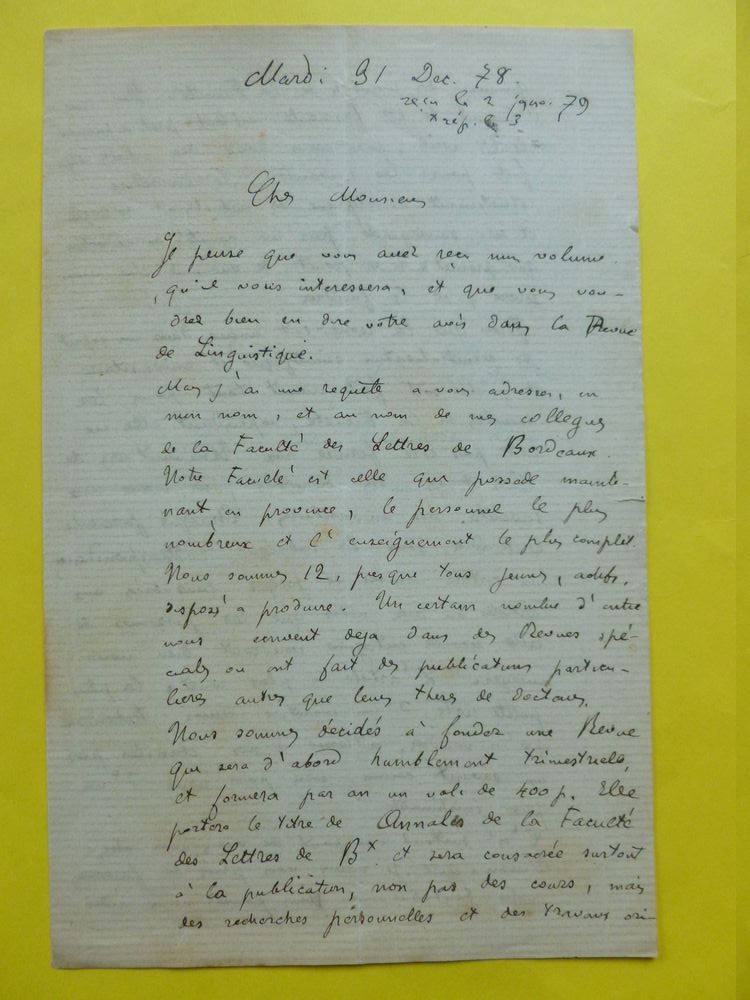 Mardi 31 Dec. 78.
reçu le 2 janv. 79
*rép. le 3
Cher Monsieur
Je pense que vous avez reçu mon volume.
qu'il vous interessera, et que vous vou-
drez bien en dire votre avis dans la Revue
de Linguistique.
Mais j'ai une requête a vous adresser, en
mon nom, et au nom de mes collegues
de la Faculté des Lettres de Bordeaux.
Notre Faculté est celle qui possede mainte-
nant en province, le personnel le plus
nombreux et l'enseignement le plus complet.
Nous sommes 12, presque tous jeunes, actifs,
disposés a produire. Un certain nombre d'entre
nous ecrivent deja dans des Revues spé-
ciales ou ont fait des publications particu-
lieres autres que leurs theses de doctorat.
Nous sommes décidés à fonder une Revue
qui sera d'abord humblement trimestrielle,
et formera par an un vol. de 400 p. Elle
portera le titre de Annales de la Faculté
des Lettres de Bx et sera consacrée surtout
à la publication, non pas des cours, mais
des recherches personnelles et des travaux ori-